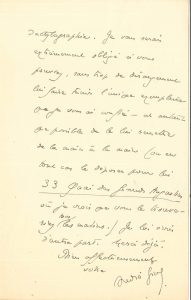 dactylographiée. Je vous serais
extrêmement obligé si vous
pouviez, sans trop de dérangement
lui faire tenir l'unique exemplaire
que je vous ai confié — et
que possible de le lui remettre
de la main à la main (ou en
tout cas le déposer pour lui
33 Quai des Grands Augustins
où je crois que vous le trouverez
les matins.) Je lui écris
d'autre part. Merci déjà.
Bien affectueusement
votre
André